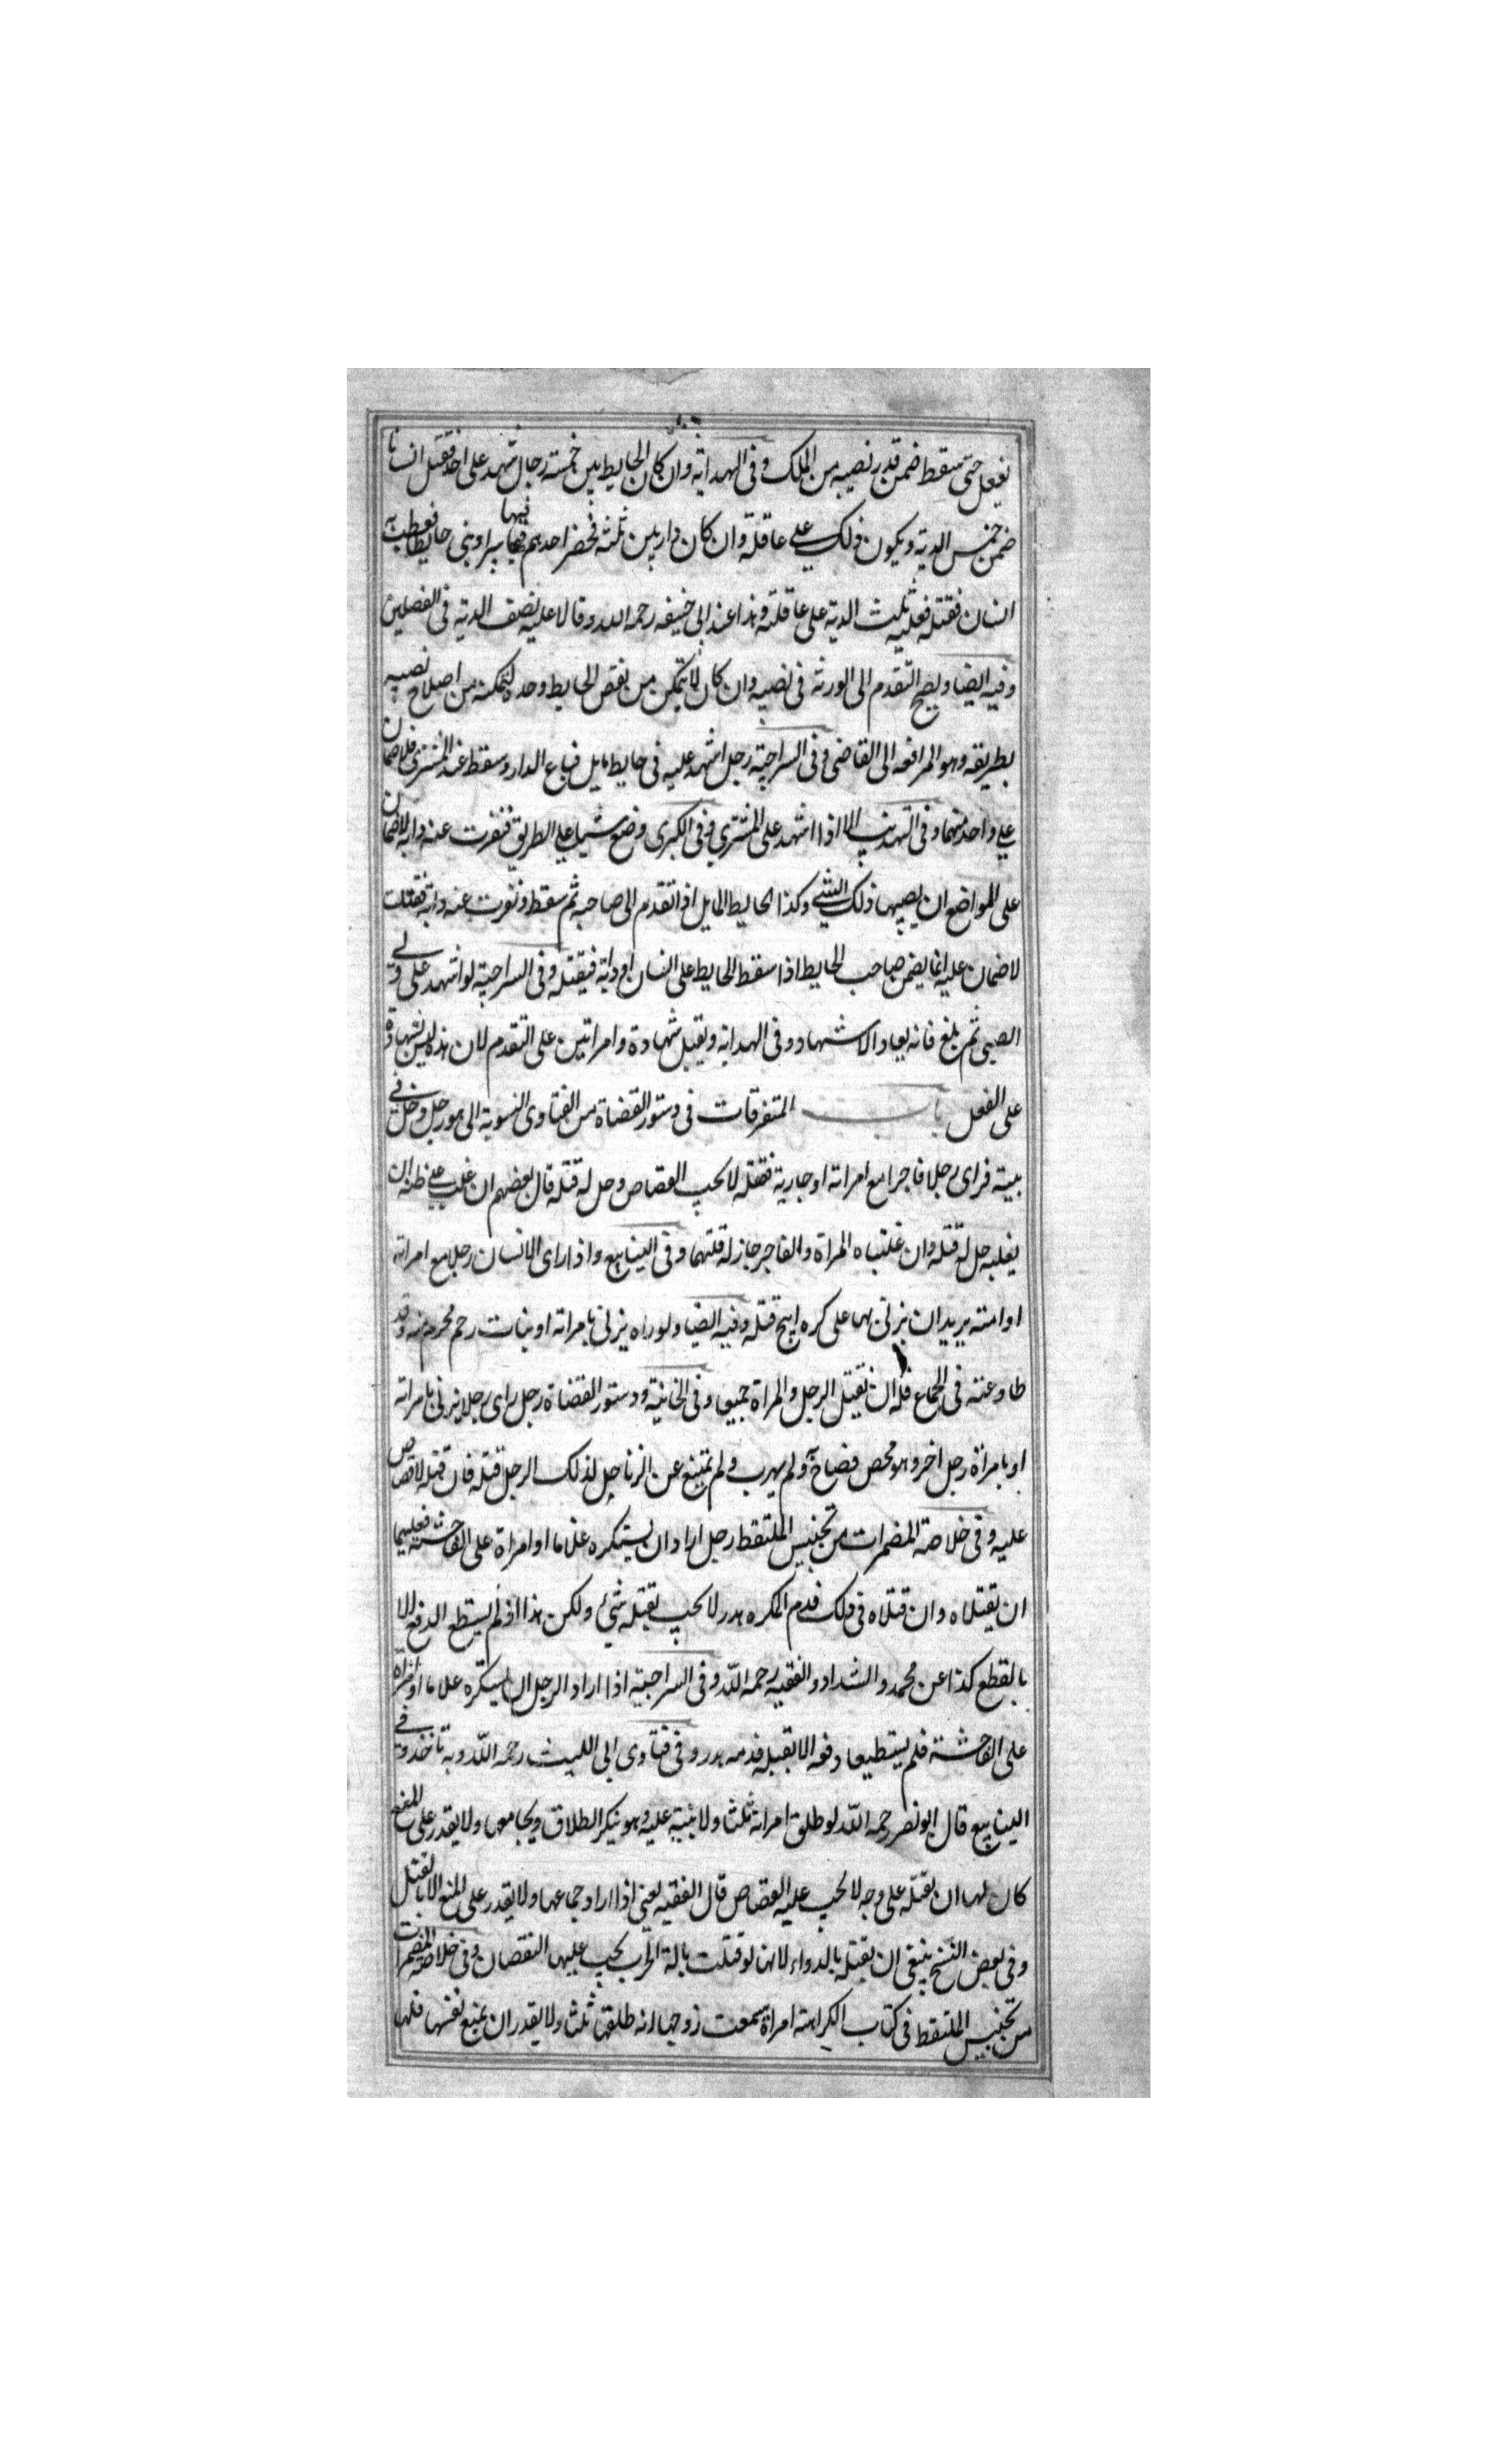 يفعل حتى سقط ضمن قدر نصيبه من الملك وفى الهداية وان كان الحايط بين خمسة رجال شهد على احد فقتل انسانا
ضمن خمس الدية ويكون ذلك على عاقلته وان كان دار بين ثلثة فحضر احدهم فيها بيرا وبنى حايطا فعطب به
انسان فقتله فعليه ثلث الدية على عاقلته وهذا عند ابى حنيفه رحمه الله وقالا عليه نصف الدية فى الفصلين
وفيه ايضا ويصح التقدم الى الورثة فى نصيبه وان كان لا يتمكن من نقض الحايط وحده لتمكنه من اصلاح نصيبه
بطريقه وهو المرافعه الى القاضى وفى السراجية رجل اشهد عليه فى حايط مايل فباع الدار وسقط عند المشترى فلا ضمان
على واحد منهما وفى التهذيب الا اذا اشهد على المشترى وفى الكبرى وضع شيا على الطريق فنفرت عنه دابة لا ضمان
على المواضع ان يصيبها ذلك الشئ وكذا الحايط المايل اذا تقدم الى صاحبه ثم سقط ونفرت عنه دابة فقتلت
لا ضمان عليه انما يضمن صاحب الحايط اذا سقط الحايط على انسان او دابة فيقتله وفى السراجية لو اشهد على ولى
الصبى ثم بلغ فانه يعاد الاشهاد وفى الهداية ويقبل شهادة وامراتين على التقدم لان هذه ليس بشهادة
على الفعل باب المتفرقات فى دستور القضاة من الفتاوى النسوبة الى هو رجل دخل فى
بيته فراى رجلا فاجرا مع امراته او جاريته فقتله لا يجب القصاص وحل له قتله قال بعضهم ان غلب على ظنه ان
يغلبه حل له قتله وان غلبتاه المراة والفاجر جاز له قتلهما وفى الينابيع واذا راى الانسان رجلا مع امراته
او امته يريد ان يزنى بها على كره ابيح قتله وفيه ايضا ولو راه يزنى بامراته او بنات رحم محرم منه وقد
طاوعته فى الجماع فله ان يقتل الرجل والمراة جميعا وفى الخانية ودستور القضاة رجل راى رجلا يزنى بامراته
او بامراة رجل اخر وهو محصن فصاح به ولم يهرب ولم يمتنع عن الزنا حل لذلك الرجل قتله فان قتله لا قصاص
عليه وفى خلاصة المضمرات من تجنيس الملتقط رجل اراد ان يستكره غلاما او امراة على الفاحشة فعليهما
ان يقتلاه وان قتلاه فى ذلك فدم المكره هدر لا يجب بقتله شئ ولكن هذا اذا لم يستطع الدفع الا
بالقطع كذا عن محمد و الشداد والفقيه رحمه الله وفى السراجية اذا اراد الرجل ان يستكره غلاما او امراة
على الفاحشة فلم يستطيعا دفعه الا بقتله فدمه هدر وفى فتاوى ابى الليث رحمه الله وبه ناخذ وفى
الينابيع قال ابو نصر رحمه الله لو طلق امراته ثلثا ولا بينة عليه وهو ينكر الطلاق ويجامعها ولا يقدر على المنع
كان لها ان تقتله على وجه لا يجب عليه القصاص قال الفقيه يعنى اذا اراد جماعها ولا يقدر على المنع الا بالقتل
وفى بعض النسخ ينبغى ان يقتله بالدواء لانها لو قتلت بالة الحرب يجب عليها النقصان وفى خلاصة المضمرات
من تجنيس الملتقط فى كتاب الكراهة امراة سمعت زوجها انه طلقها ثلثا ولا يقدر ان يمنع نفسها فلها